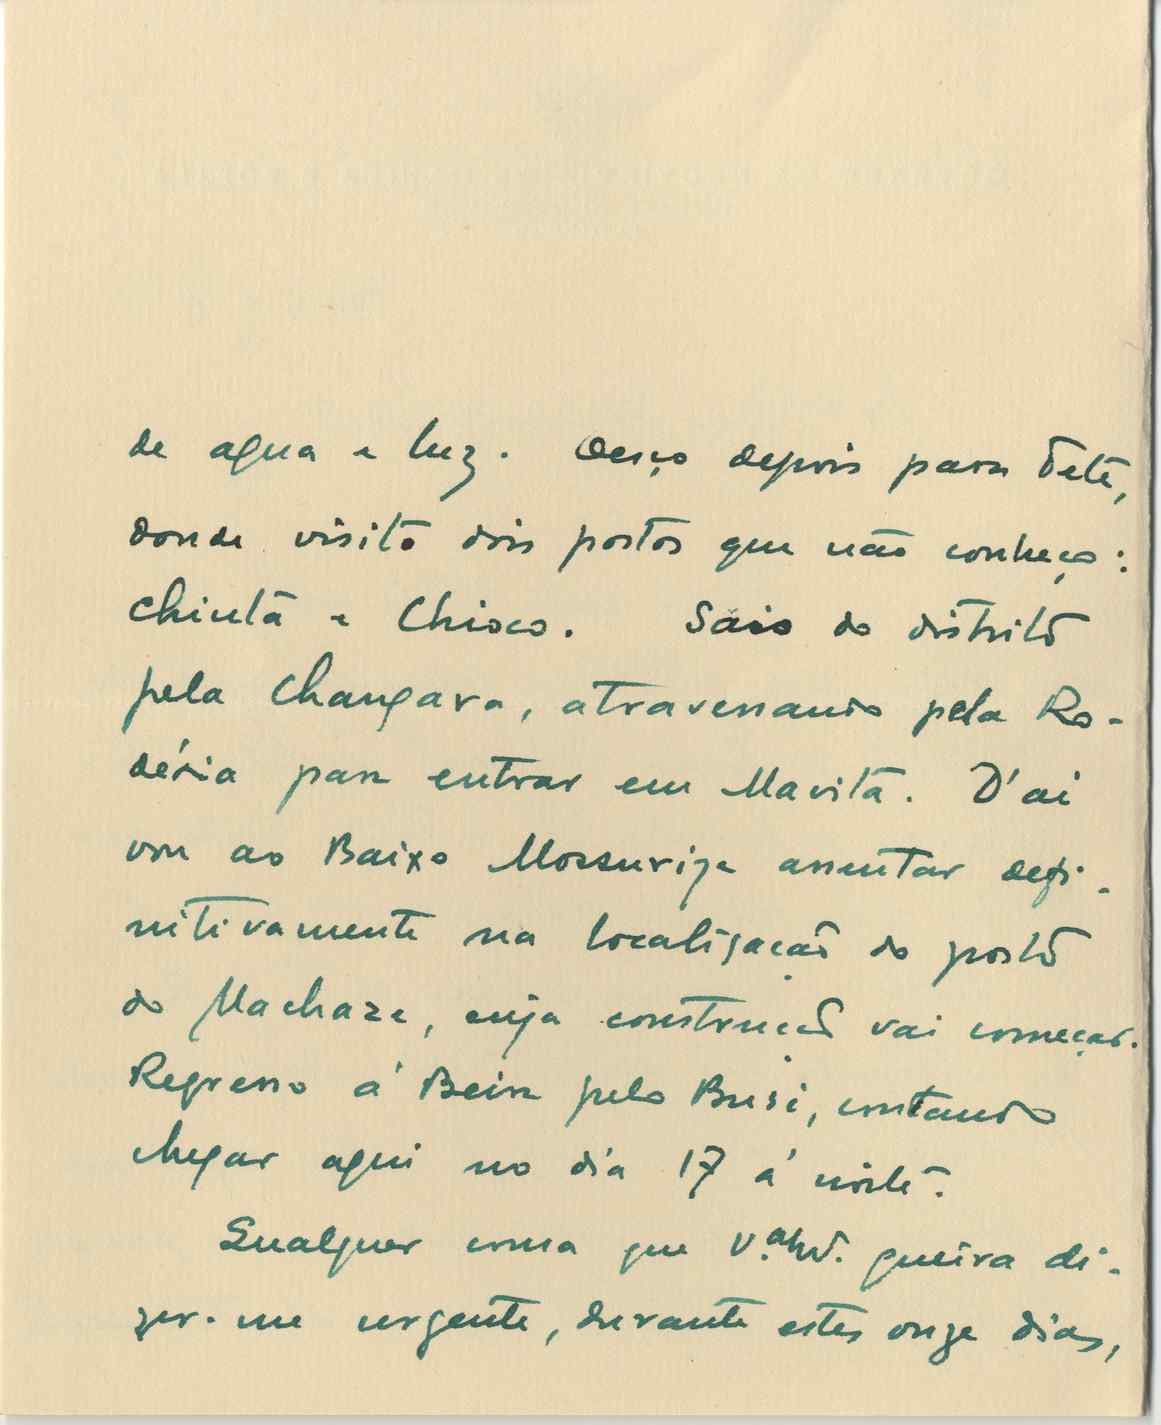 de agua e luz. Desço depois para Tete,
donde visito dois postos que não conheço:
Chiuta e Chioco. Saio do distrito
pela Changara, atravessando pela Ro-
désia para entrar em Mavita. D'ai
vou ao Baixo Mossurize assentar defi-
nitivamente na localização do posto
do Machaze, cuja construção vai começar.
Regresso á Beira pelo Busi, contando
chegar aqui no dia 17 á noite.
Qualquer cousa que V.ª queira di-
zer-me urgente, durante estes onze dias,